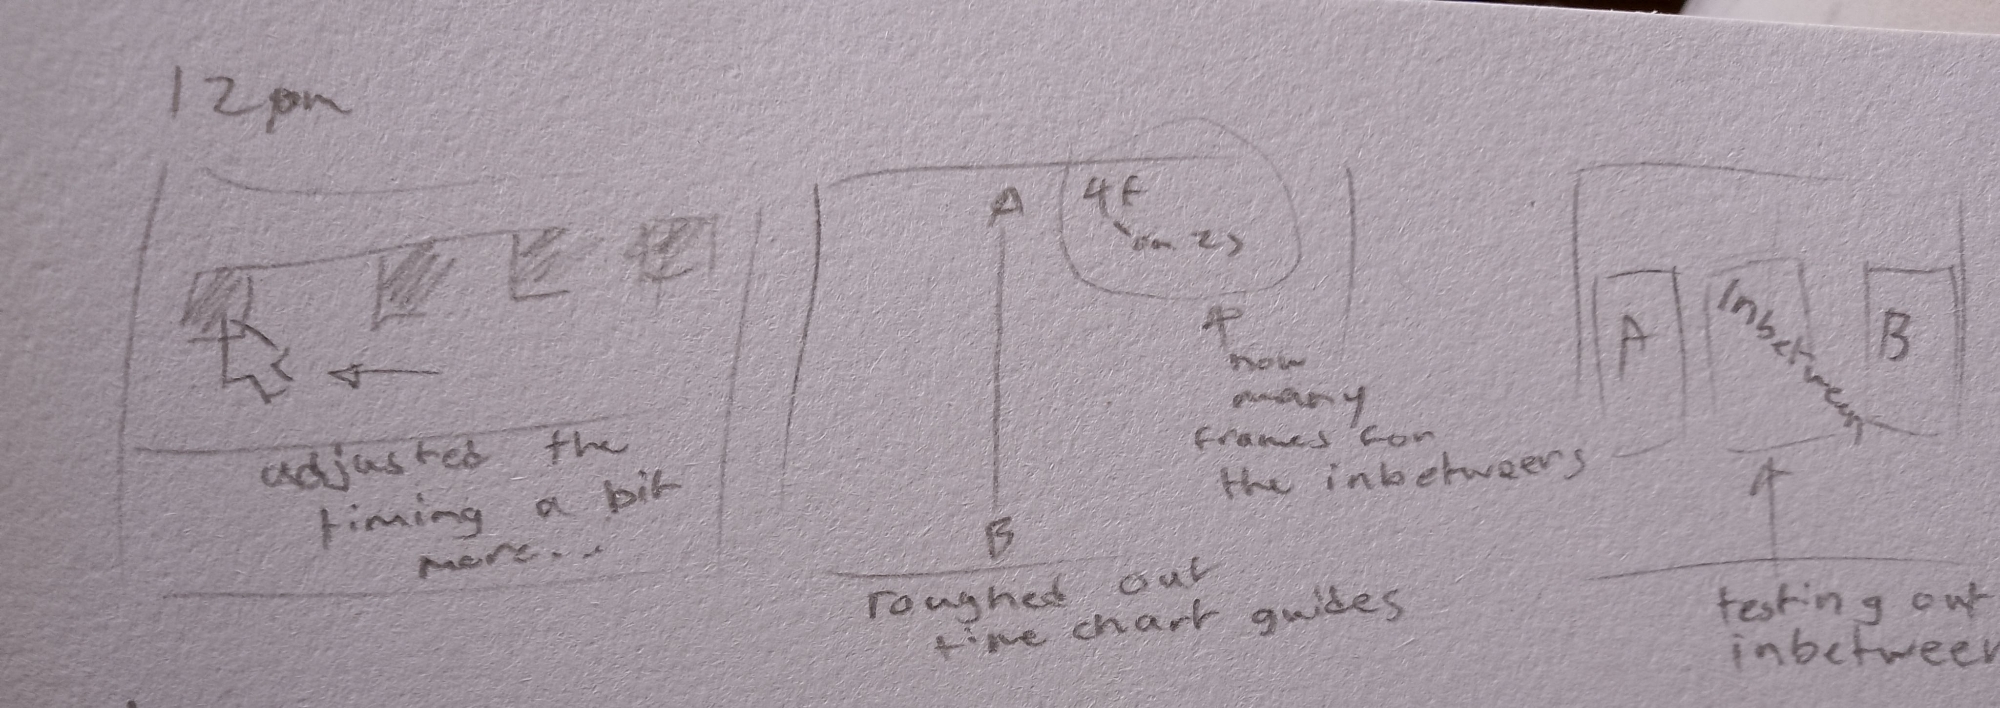 12pm
adjusted the
timing a bit
more...
A
4f
on 2s
how
many
frames for
the inbetweens
B
roughed out
time chart guides
A
Inbetween
B
testing out
inbetween